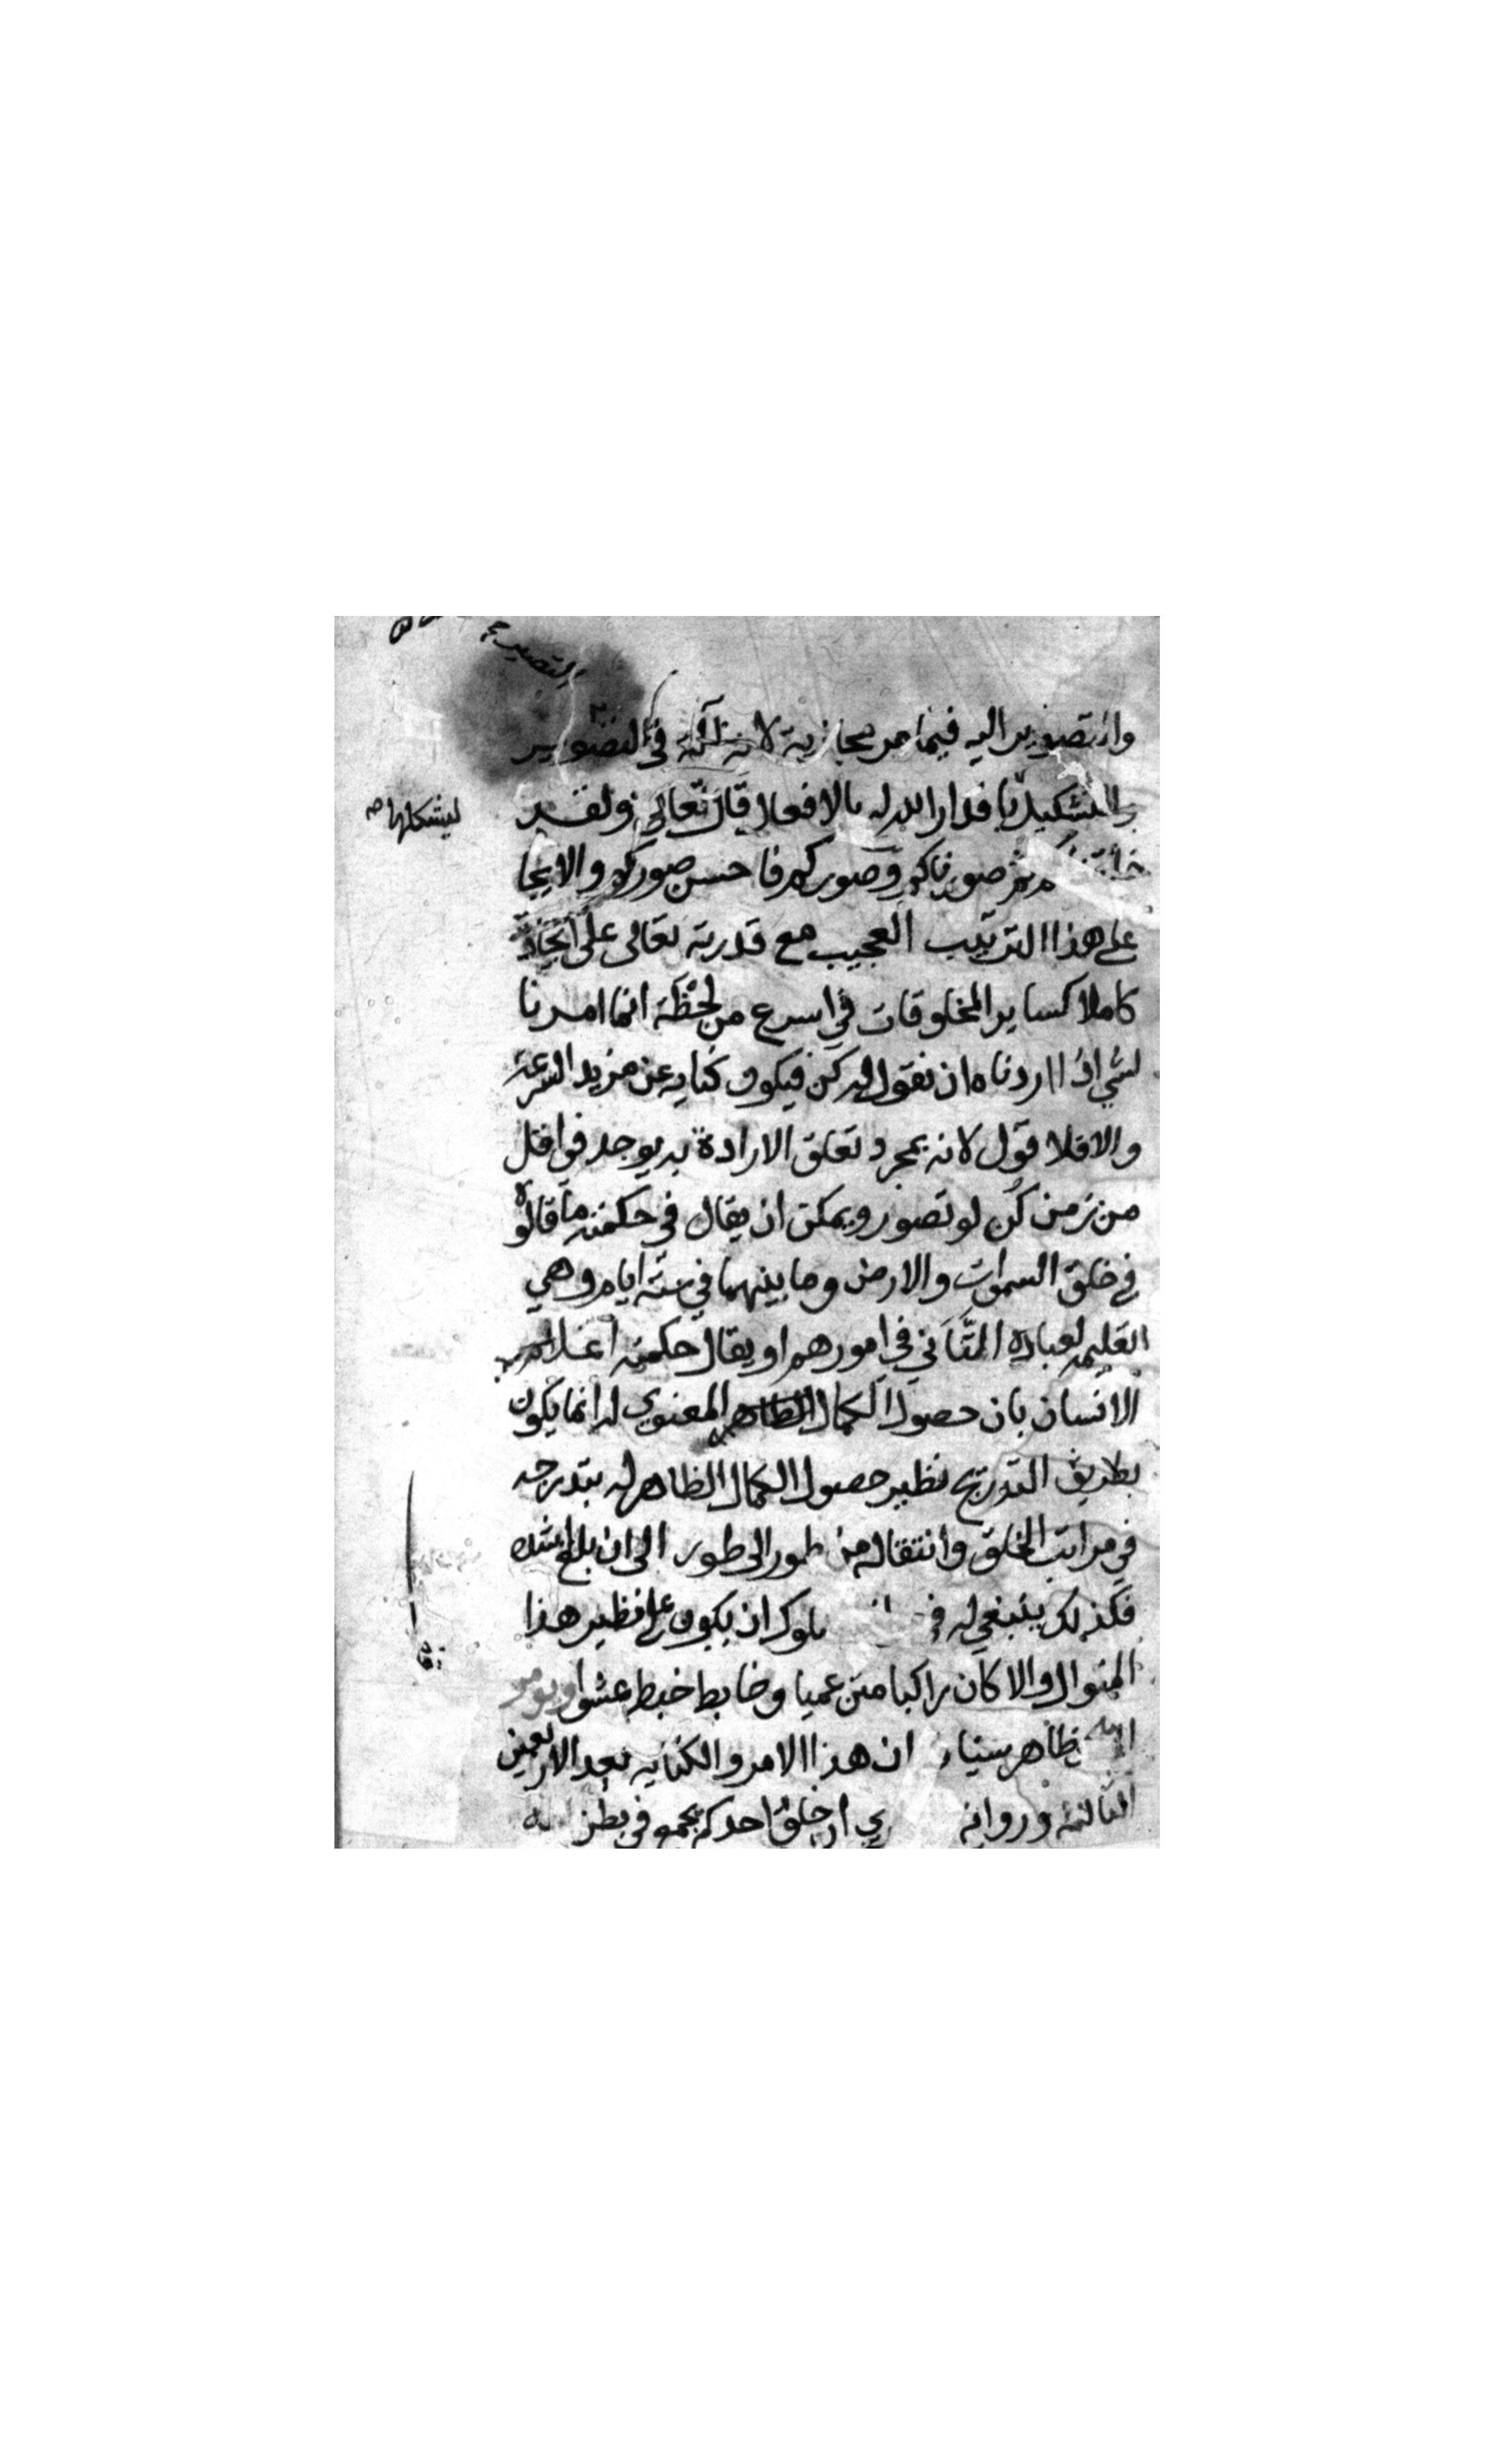 التصوير
والتصوير اليه فيما مر مجازية لانه آلة في التصوير
والتشكيل باقدار الله له بالافعال قال تعالى ولقد
ليشكلها صح
خلقناكم ثم صورناكم وصوركم فاحسن صوركم والايجا
على هذا الترتيب العجيب مع قدرته تعالى على ايجاده
كاملا كساير المخلوقات في اسرع من لحظة انما امرنا
لشي اذا اردناه ان نقول له كن فيكون كناية عن مزيد السرعة
والا فلا قول لانه بمجرد تعلق الارادة به يوجد في اقل
من زمن كن لو تصور ويمكن ان يقال في حكمته ما قالوه
في خلق السموات والارض وما بينهما في ستة ايام وهي
تعليمه لعباده التأني في امورهم او يقال حكمته اعلام
الانسان بان حصول الكمال المعنوي له انما يكون
بطريق التدريج نظير حصول الكمال الظاهر له بتدرجه
في مراتب الخلق وانتقاله من طور الى طور الى ان بلغ اشده
فكذلك ينبغي له في ان يكون على نظير هذا
المنوال والا كان راكبا متن عميا وخابط خبط عشوا
ظاهر سياق ان هذا الامر والكتابه بعد الاربعين
الثالثة ورواية ان خلق احدكم يجمع في بطن